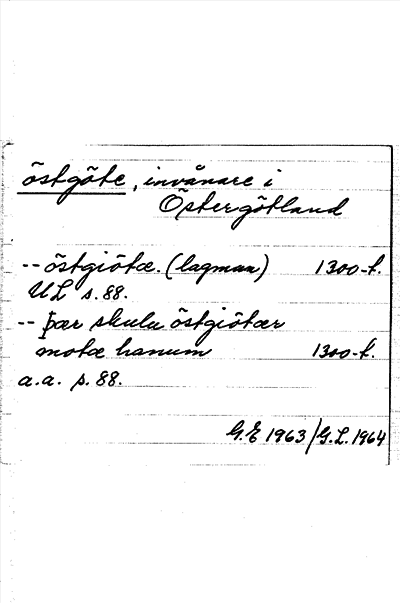 östgöte, invånare i
Östergötland
-- östgiötæ. (lagman) 1300-t.
UL s. 88.
-- þær skulu östgiötær
motæ hanum 1300-t.
a.a. s. 88.
G.E 1963/G.L. 1964